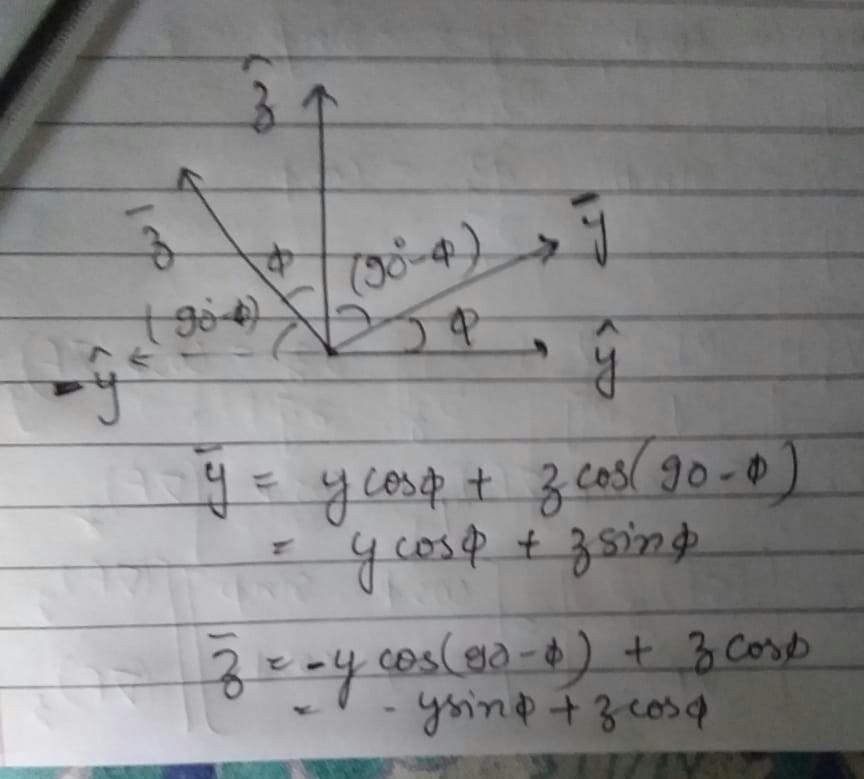 ẑ
z̄
ϕ
(90°-ϕ)
ȳ
(90°-ϕ)
ϕ
-ŷ
ŷ
ȳ = y cosϕ + z cos(90-ϕ)
= y cosϕ + z sinϕ
z̄ = -y cos(90-ϕ) + z cosϕ
= - y sinϕ + z cosϕ